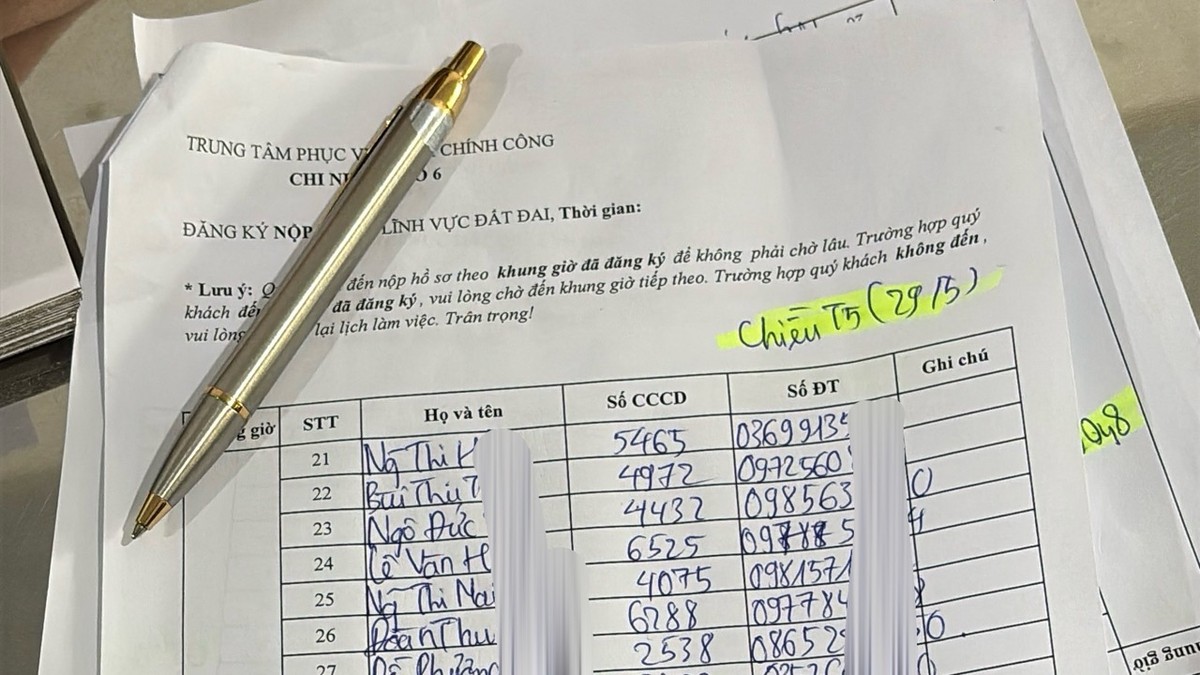 TRUNG TÂM PHỤC V CHÍNH CÔNG
CHI N Ố 6
ĐĂNG KÝ NỘP LĨNH VỰC ĐẤT ĐAI, Thời gian:
* Lưu ý: Q đến nộp hồ sơ theo khung giờ đã đăng ký để không phải chờ lâu. Trường hợp quý
khách đến đã đăng ký, vui lòng chờ đến khung giờ tiếp theo. Trường hợp quý khách không đến,
vui lòng lại lịch làm việc. Trân trọng!
Chiều T5 (29/5)
g giờ STT Họ và tên Số CCCD Số ĐT Ghi chú
21 Ng Thị H 5465 03699135
22 Bùi Thu T 4972 0972560
23 Ngô Đức 4432 098563 0
24 Lê Văn H 6525 09788 5
25 Ng Thị Mai 4075 0981571
26 Đoàn Thu 6288 097784
27 2538 08652 0
048
ung giờ